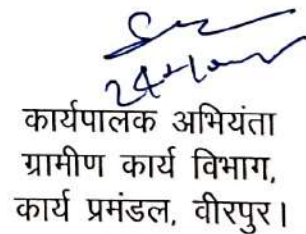 कार्यपालक अभियंता
ग्रामीण कार्य विभाग,
कार्य प्रमंडल, वीरपुर।